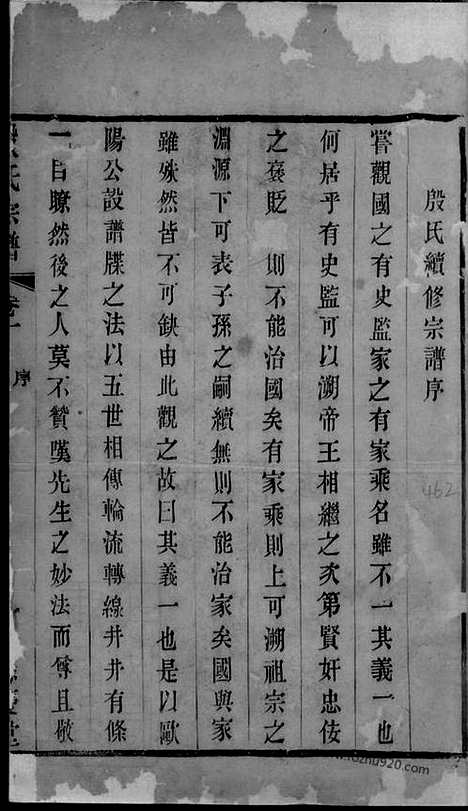 殷氏續修宗譜序
嘗觀國之有史監家之有家乘名雖不一其義一也
何居乎有史監可以溯帝王相繼之次第賢奸忠佞
之褒貶 則不能治國矣有家乘則上可溯祖宗之
淵源下可表子孫之嗣續無則不能治家矣國與家
雖殊然皆不可缺由此觀之故曰其義一也是以歐
陽公設譜牒之法以五世相傳輪流轉線井井有條
一目瞭然後之人莫不贊嘆先生之妙法而尊且敬
氏宗譜 卷一 序
462